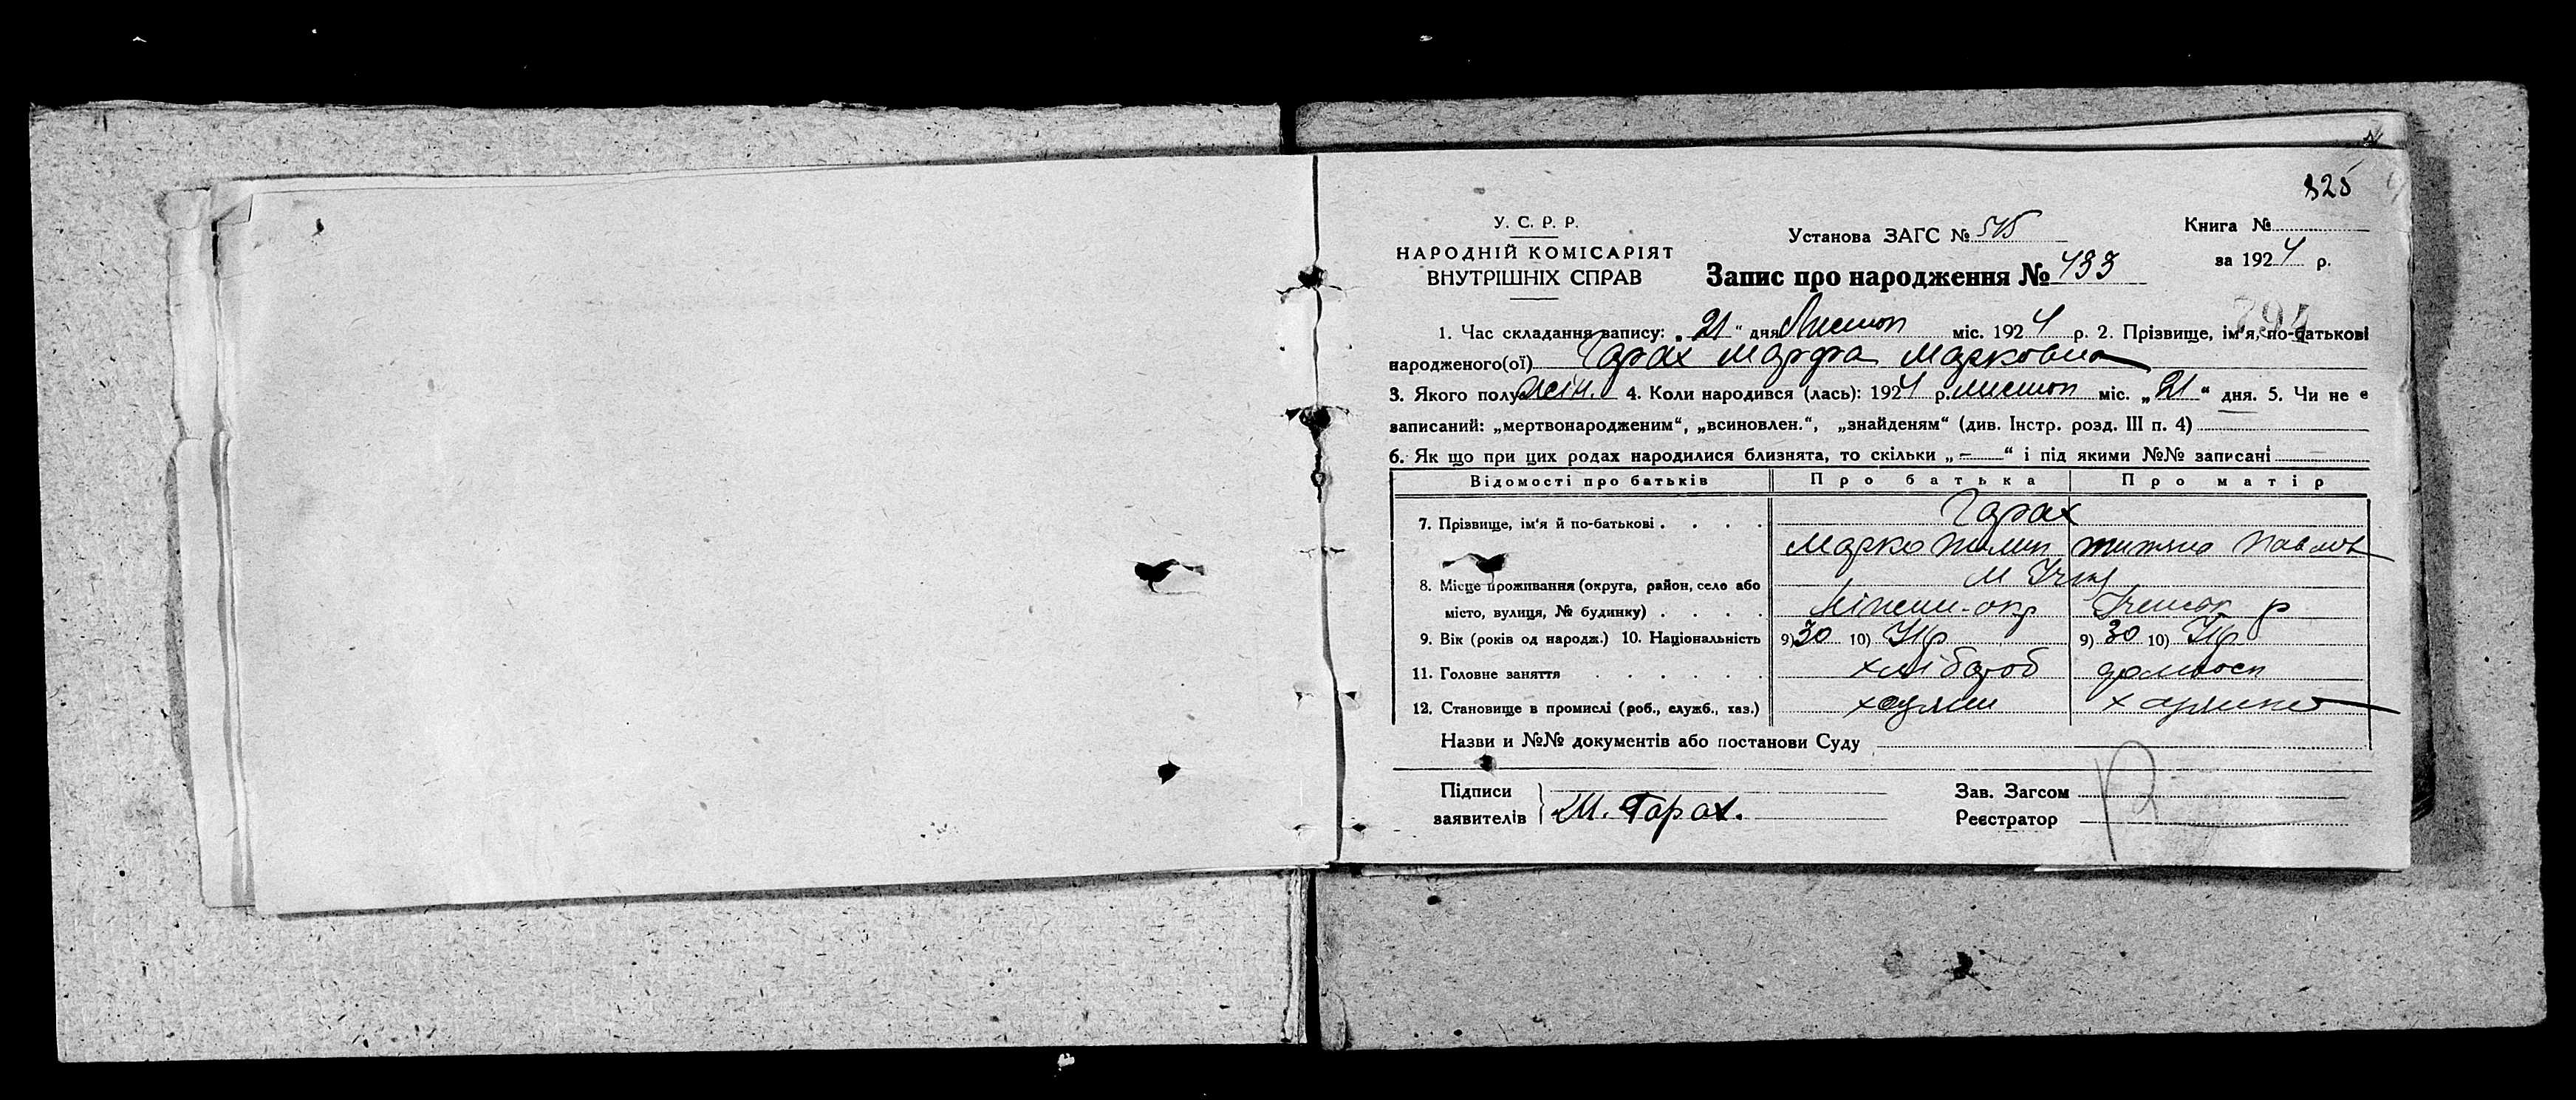 325
У. С. Р. Р.
НАРОДНІЙ КОМІСАРІЯТ
ВНУТРІШНІХ СПРАВ
Установа ЗАГС №
Книга №
за 1924 р.
Запис про народження № 433
1. Час складання запису: „21“ дня Листоп міс. 1924 р. 2. Прізвище, ім'я, по-батькові
794
народженого(ої) Гарах Марфа Марковна
3. Якого полу жін. 4. Коли народився (лась): 1924 р. листоп міс. „21“ дня. 5. Чи не є
записаний: „мертвонародженим“, „всиновлен.“, „знайденям“ (див. Інстр. розд. III п. 4)
6. Як що при цих родах народилися близнята, то скільки „—“ і під якими №№ записані
Відомості про батьків Про батька Про матір
7. Прізвище, ім'я й по-батькові . . . . Гарах
Марко Павлов
8. Місце проживання (округа, район, село або м
місто, вулиця, № будинку) . . . . окр р
9. Вік (років од народж.) 10. Національність 9) 30 10) Укр 9) 30 10) Укр
11. Головне заняття . . . . . . хлібороб домгосп
12. Становище в промислі (роб., служб., хаз.) хазяин хазяика
Назви и №№ документів або постанови Суду
Підписи
заявителів М. Гарах.
Зав. Загсом
Реєстратор